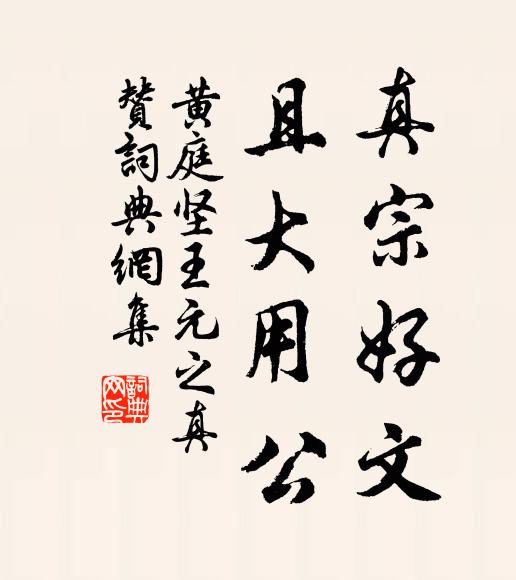 真宗好文
且大用公
黄庭坚王元之真
賛詞典網集
詞典网印